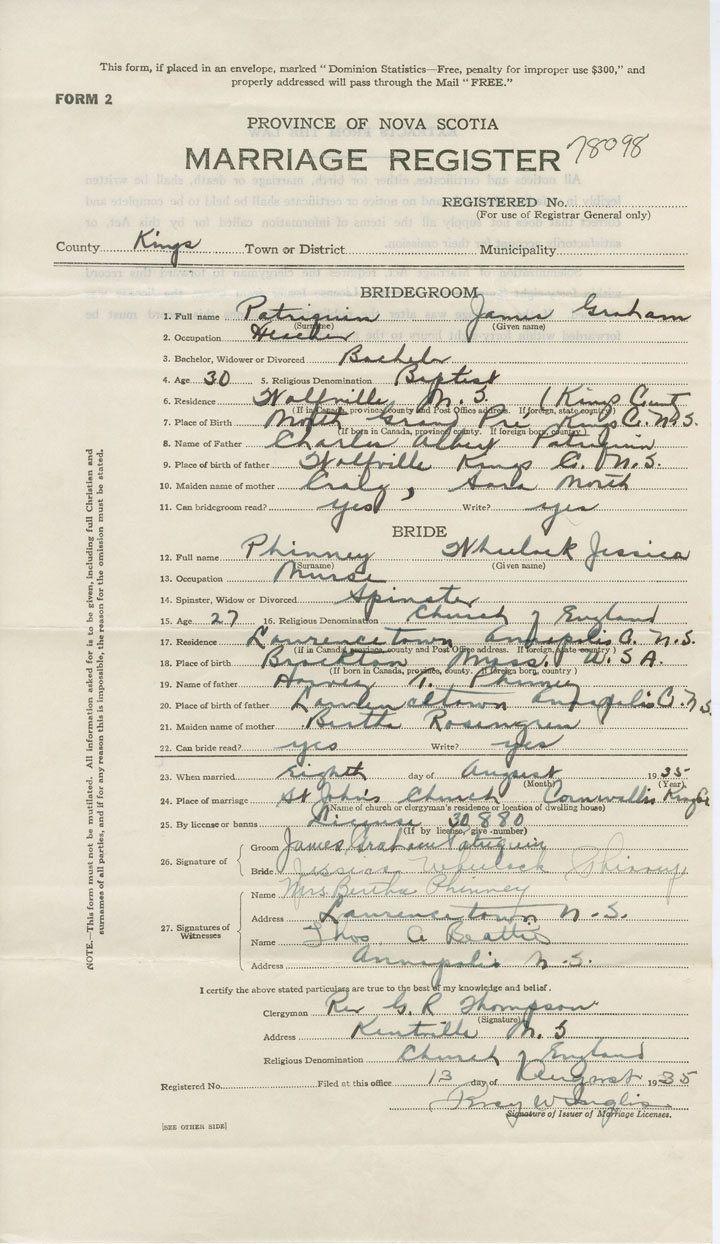 This form, if placed in an envelope, marked "Dominion Statistics—Free, penalty for improper use $300," and
properly addressed will pass through the Mail "FREE."
FORM 2
PROVINCE OF NOVA SCOTIA
MARRIAGE REGISTER 78098
REGISTERED No.
(For use of Registrar General only)
County Kings Town or District Municipality
BRIDEGROOM
1. Full name Patriquin James Graham
(Surname) (Given name)
2. Occupation
3. Bachelor, Widower or Divorced Bachelor
4. Age 30 5. Religious Denomination Baptist
6. Residence Wolfville N. S. (Kings Count
(If in Canada, province, county and Post Office address. If foreign, state country)
7. Place of Birth North Grand Pre Kings Co. N.S.
(If born in Canada, province, county. If foreign born, country)
8. Name of Father Charles Albert Patriquin
9. Place of birth of father Wolfville Kings Co. N.S.
10. Maiden name of mother Craig, Sara North
11. Can bridegroom read? yes Write? yes
BRIDE
12. Full name Phinney Wheelock Jessica
(Surname) (Given name)
13. Occupation Nurse
14. Spinster, Widow or Divorced Spinster
15. Age 27 16. Religious Denomination Church of England
17. Residence Laurencetown Annapolis Co. N.S.
(If in Canada, province, county and Post Office address. If foreign, state country)
18. Place of birth Brockton Mass. U.S.A.
(If born in Canada, province, county. If foreign born, country)
19. Name of father Harvey T. Phinney
20. Place of birth of father Annapolis Co. N.S.
21. Maiden name of mother Bertha Rosengren
22. Can bride read? yes Write? yes
23. When married eighth day of August 1935
(Month) (Year)
24. Place of marriage St John's Church Cornwallis Kings Co
(Name of church or clergyman's residence or location of dwelling house)
25. By license or banns License 30880
(If by license, give number)
26. Signature of Groom James Graham Patriquin
Bride Jessica Wheelock Phinney
27. Signatures of Witnesses
Name Mrs. Bertha Phinney
Address Laurencetown N.S.
Name Thos. A Beattie
Address Annapolis N.S.
I certify the above stated particulars are true to the best of my knowledge and belief.
Clergyman Rev G. R Thompson
(Signature)
Address Kentville N.S
Religious Denomination Church of England
Registered No. Filed at this office 13 day of August 1935
Signature of Issuer of Marriage Licenses.
[SEE OTHER SIDE]
NOTE.—This form must not be mutilated. All information asked for is to be given, including full Christian and
surnames of all parties, and if for any reason this is impossible, the reason for the omission must be stated.